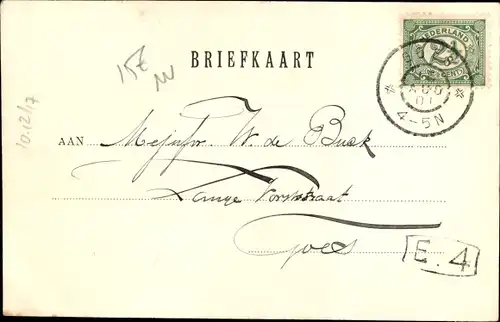 BRIEFKAART
15€
NEDERLAND
2½
CENT
AUG
01
4-5N
10.12/17
AAN Mejufvr. W. de Buck
Lange Vorststraat
Goes
E. 4